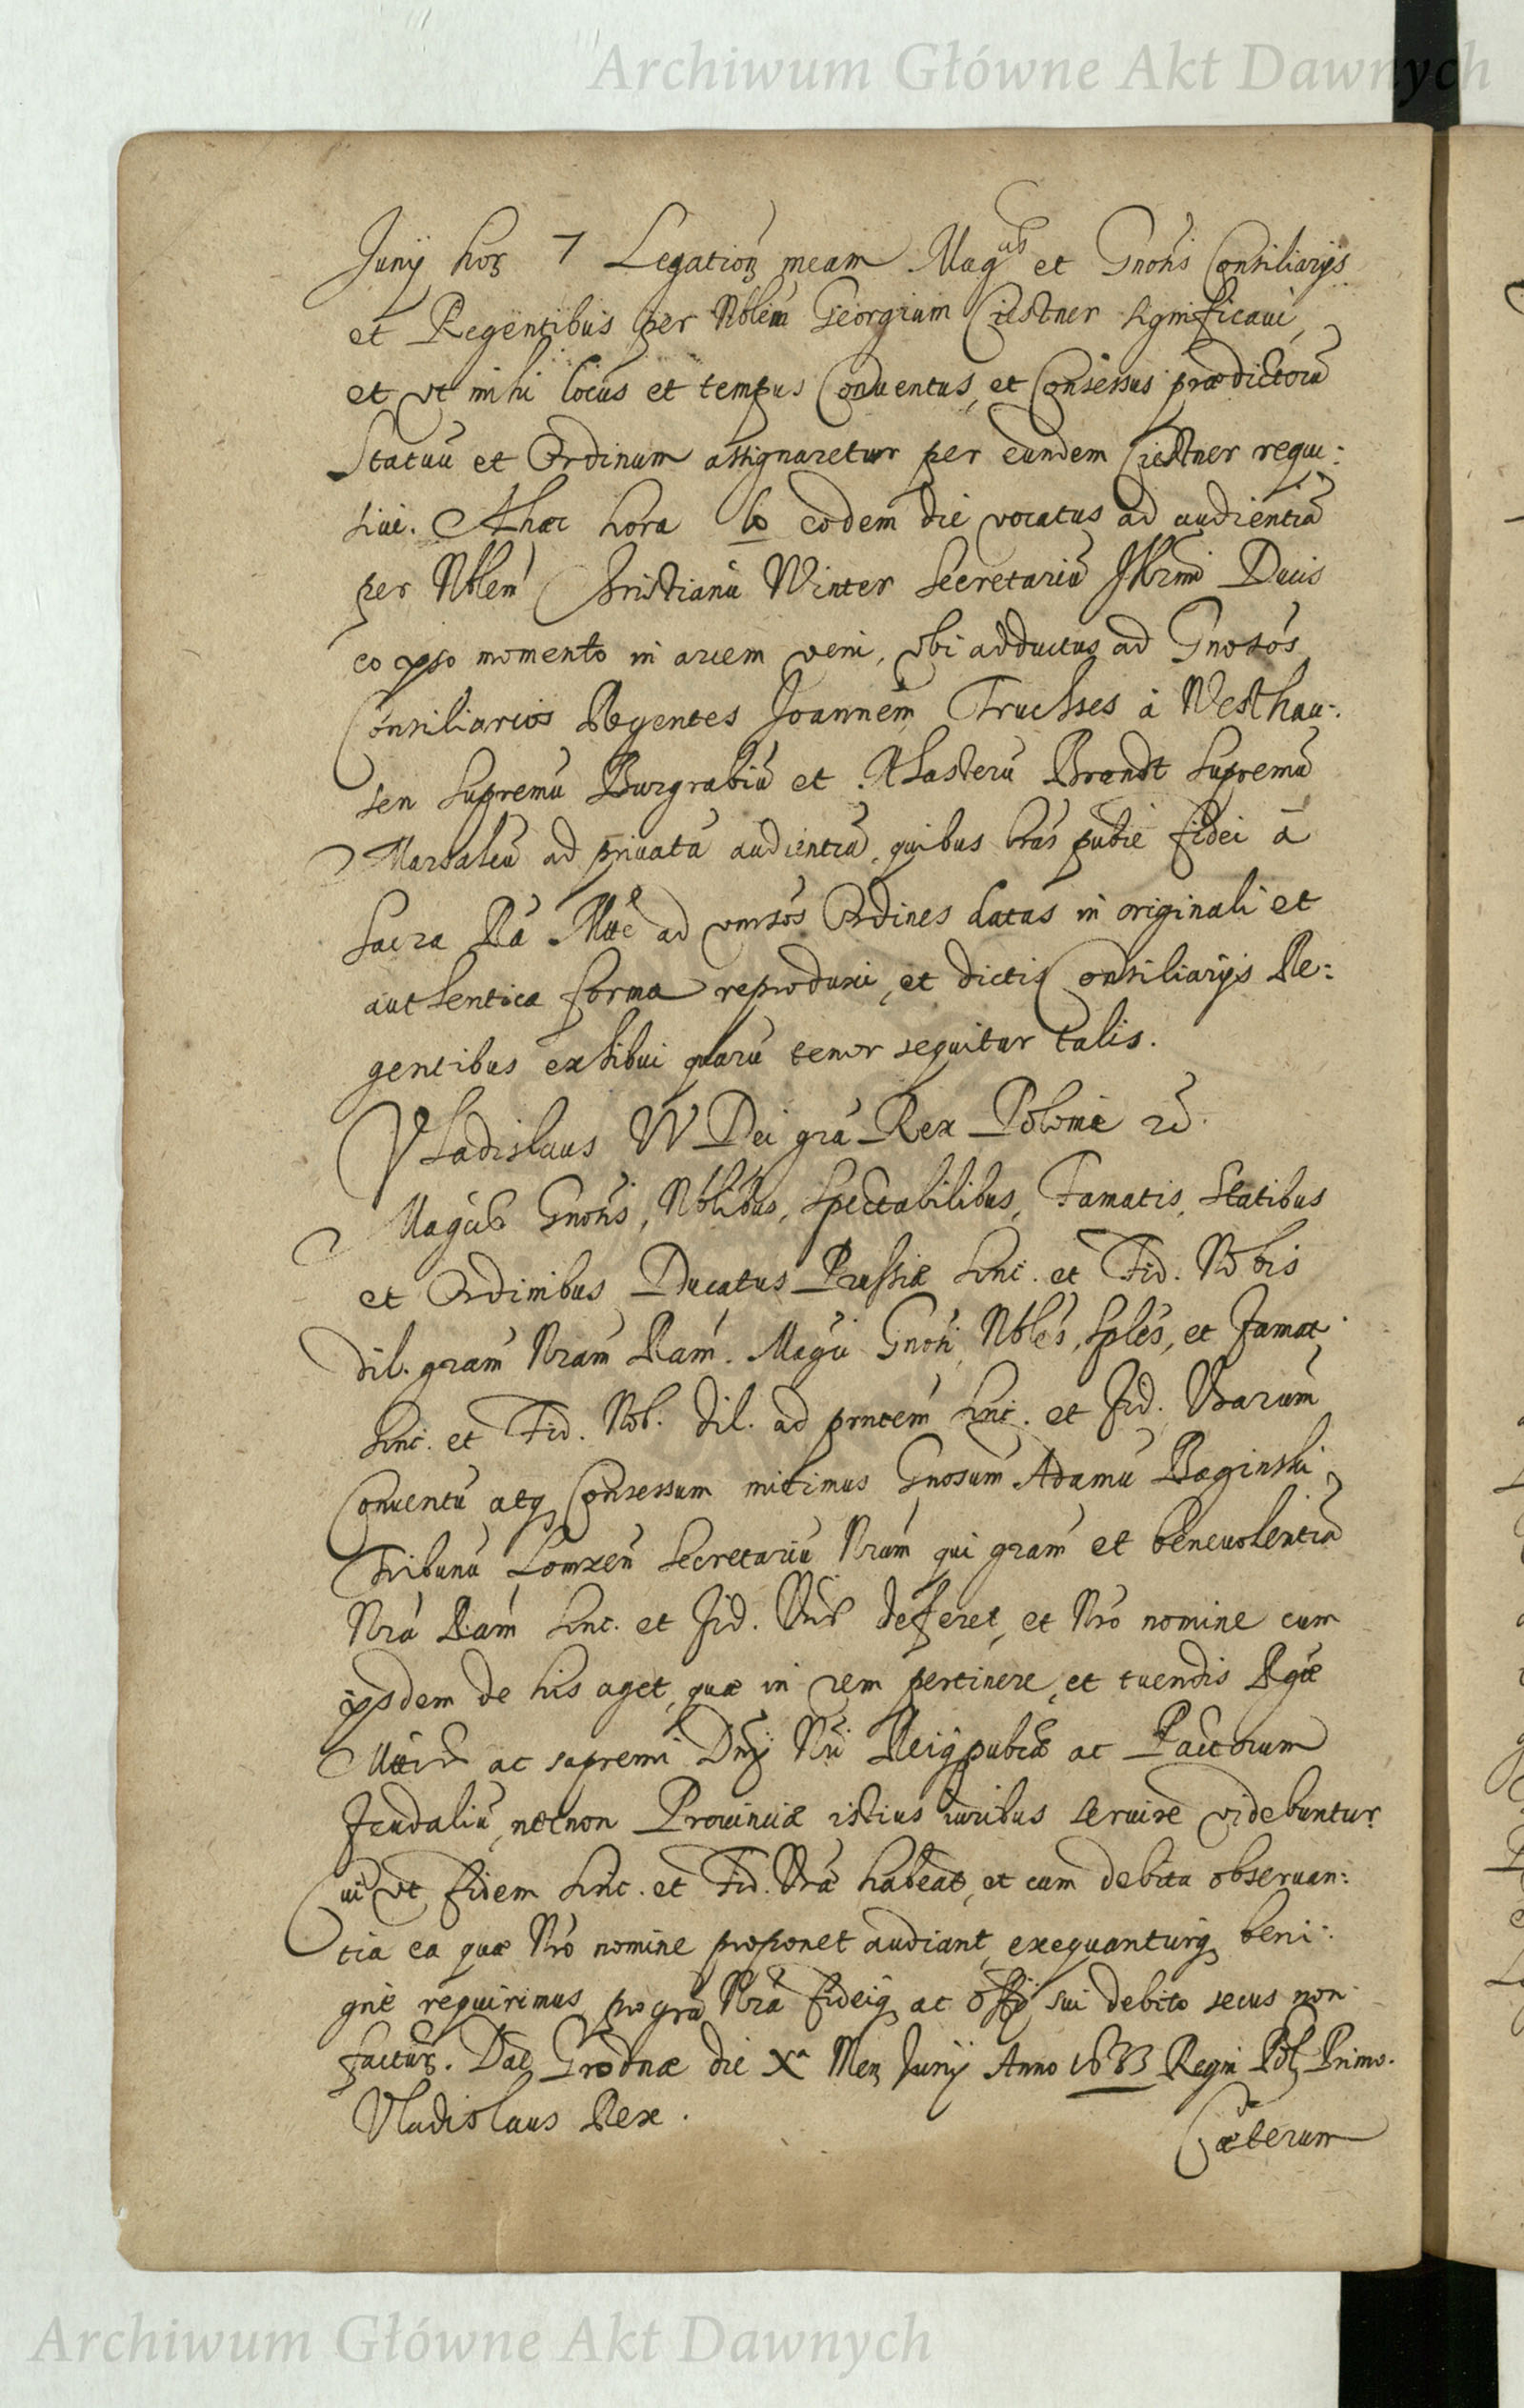 Archiwum Główne Akt Dawnych
Junij hor 7 Legation meam Mag^cis et Gnosis Consiliarijs
et Regentibus per Nblem Georgium Ciestner significaui,
et vt mihi locus et tempus Conuentus, et Consessus prædictorū
Statuū et Ordinum assignaretur per eundem Ciestner requi:
siui. At hæc hora eodem die vocatus ad audientiā
per Nblem Christianū Winter Secretariū Illrmi Ducis
eo ipso momento in arcem veni, vbi adductus ad Gnosos
Consiliarios Regentes Joannem Truchses à Westhau:
sen Supremū Burgrabiū et Brandt Supremū
Marsalcū ad priuatā audientiā, quibus lras publce fidei à
Sacra Ra Mtte ad vnirsos Ordines datas in originali et
authentica forma reproduxi, et dictis Consiliarijs Re:
gentibus exhibui quarū tenor sequitur talis.
Vladislaus IV Dei gra Rex Poloniæ
Magcis Gnosis, Nblibus, Spectabilibus, Famatis, Statibus
et Ordinibus Ducatus Prussiæ Sinc. et Fid. Nobis
dil. gram Nram Ram. Magci Gnosi, Nbles, Sples, et Famat.
Sinc. et Fid. Nob. dil. ad prntem Sinc. et Fid. Vrarum
Conuentū atq Consessum mitimus Gnosum Adamū Baginski
Tribunū Lomzen Secretariū Nrum qui gram et beneuolentiā
Nrā Ram Sinc. et Fid. Vris deferet, et Nro nomine cum
ipsdem de his aget, quæ in rem pertinere, et tuendis Rgiæ
Mttis ac supremi Dnij Nri Reiqpublcæ ac Pactorum
Feudaliū, necnon Prouinciæ istius iuribus seruire videbuntur.
Cui vt fidem Sinc. et Fid. Vræ habeat, et cum debita obseruan:
tia ea quæ Nro nomine proponet audiant, exequanturq beni:
gne requirimus, pro gra Nra fideiq ac offij sui debito secus non
factur. Dat Grodnæ die Xa Men Junij Anno 1633 Regni Pol Primo.
Vladislaus Rex.
Cæterum
Archiwum Główne Akt Dawnych